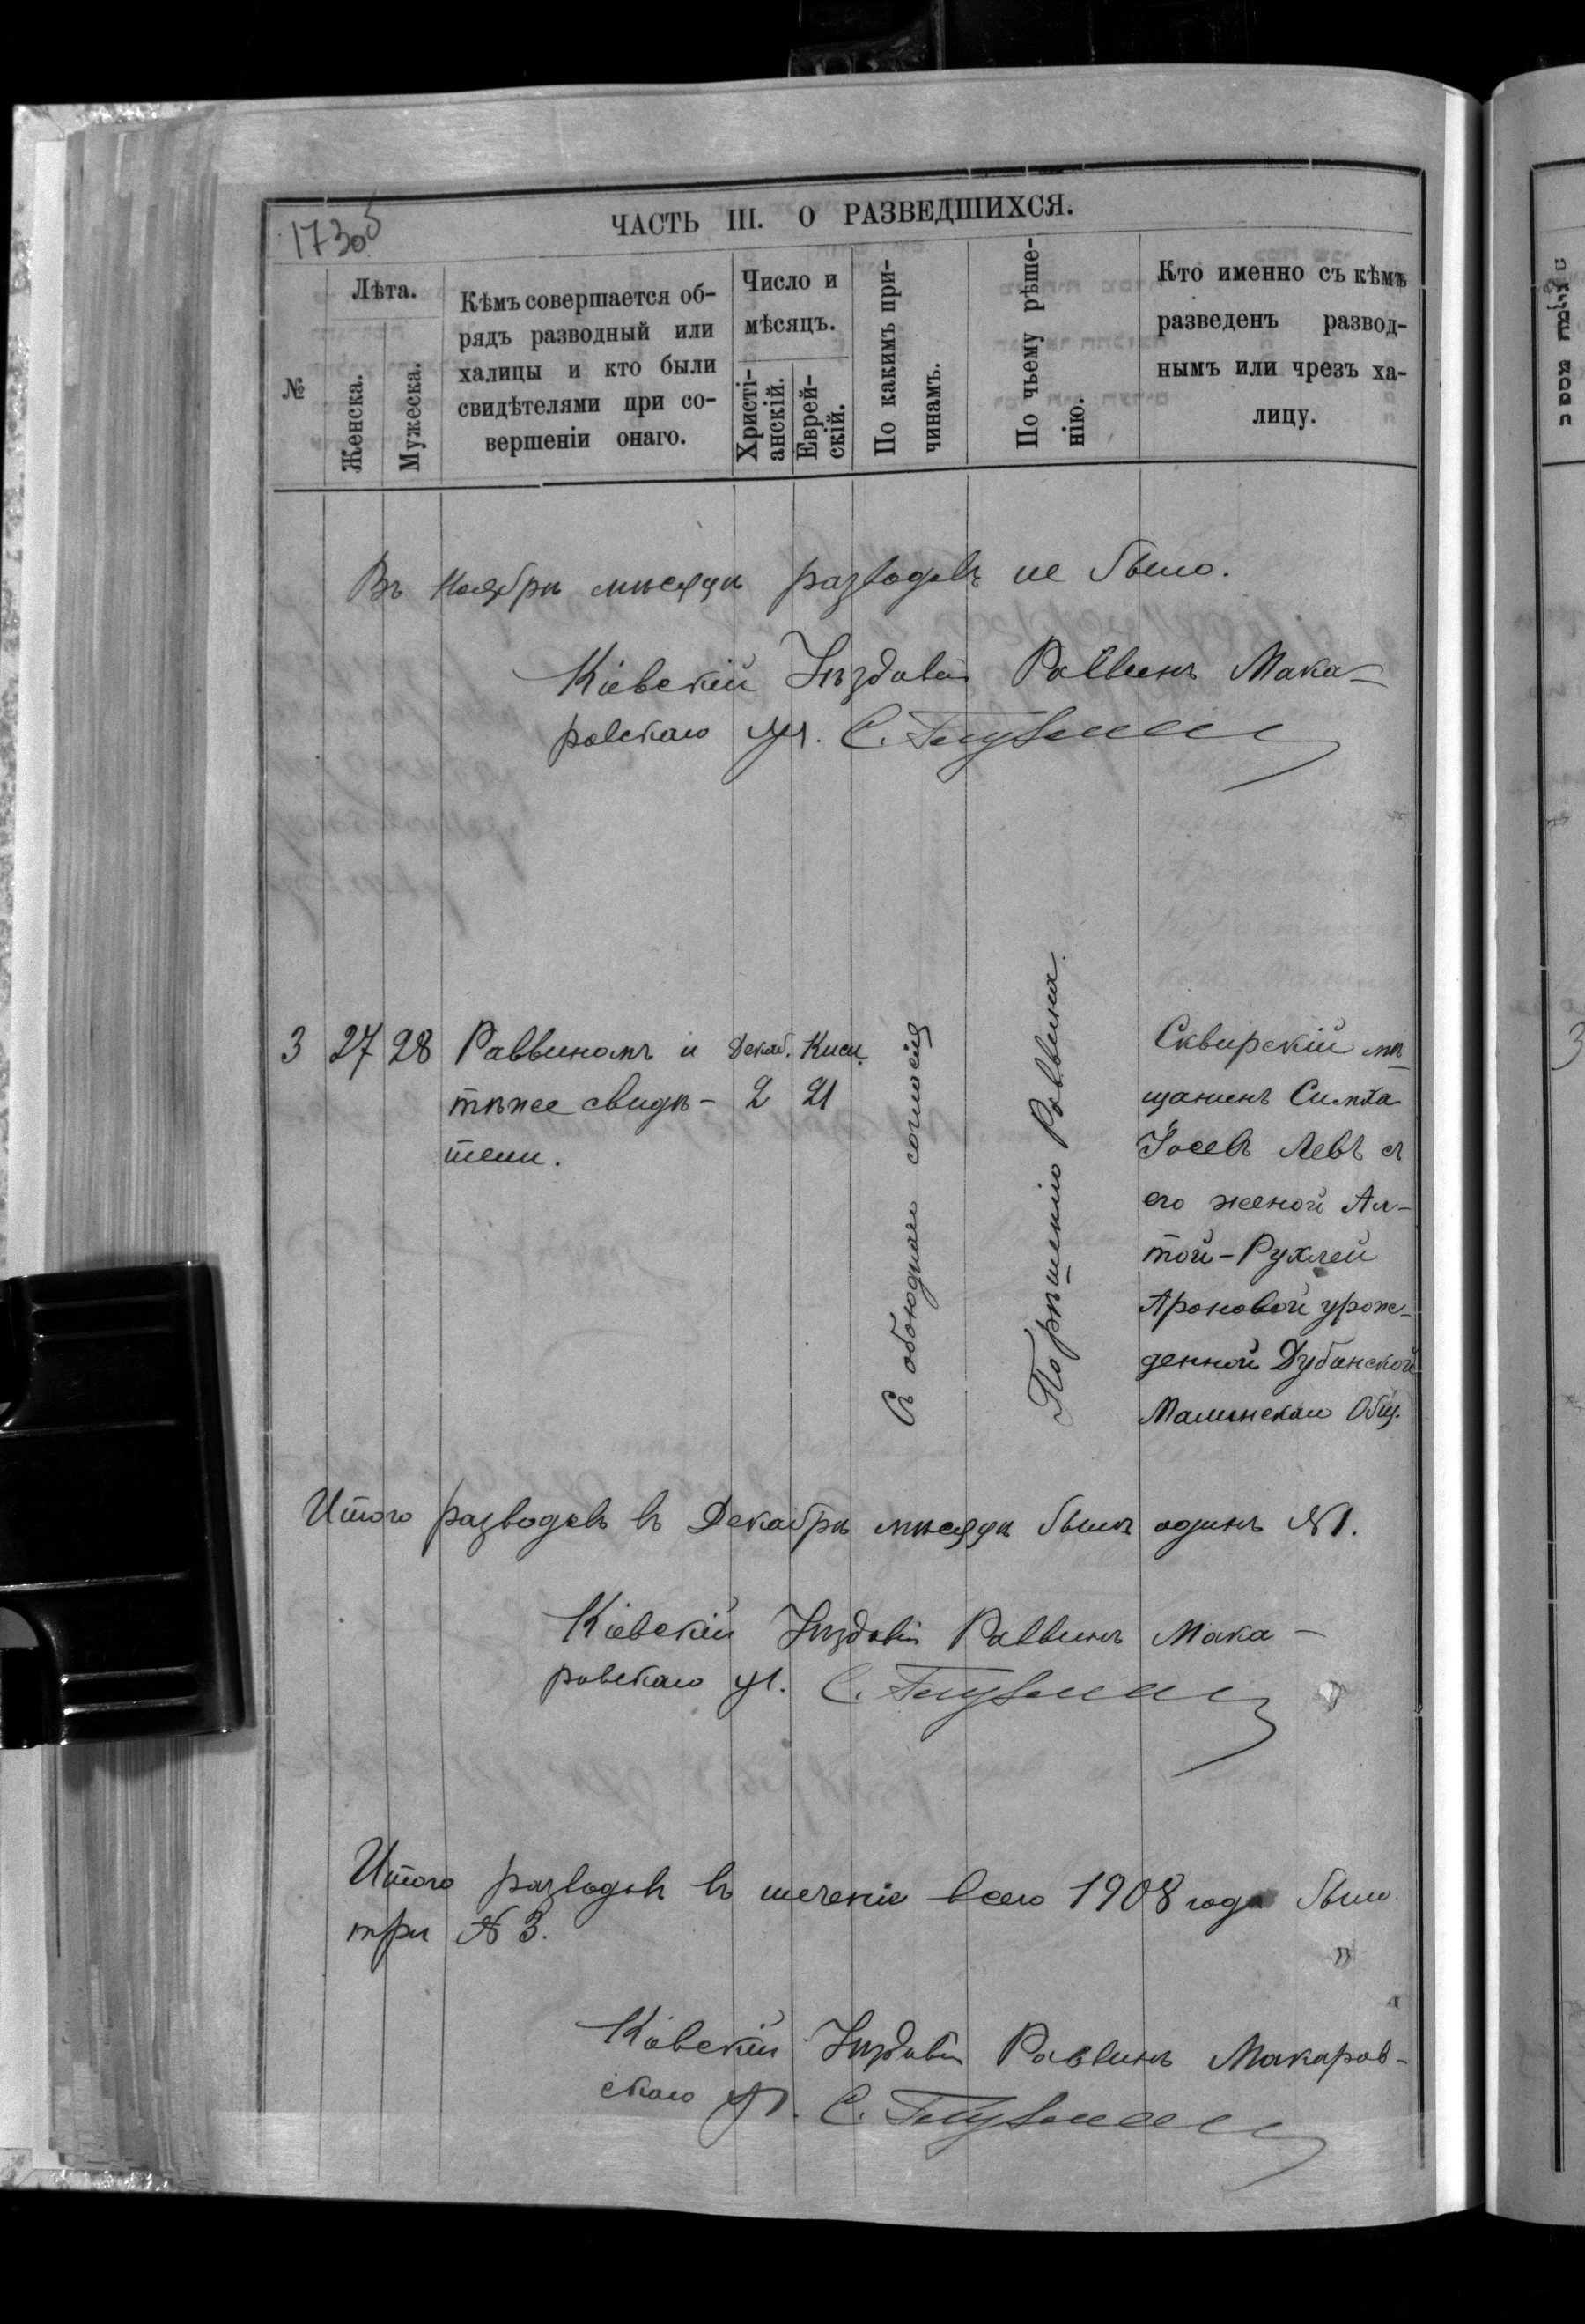 1730б
ЧАСТЬ III. О РАЗВЕДШИХСЯ.
№
Лѣта.
Женска.
Мужеска.
Кѣмъ совершается об-
рядъ разводный или
халицы и кто были
свидѣтелями при со-
вершеніи онаго.
Число и
мѣсяцъ.
Христі-
анскій.
Еврей-
скій.
По какимъ при-
чинамъ.
По чьему рѣше-
нію.
Кто именно съ кѣмъ
разведенъ развод-
нымъ или чрезъ ха-
лицу.
Въ Ноябрѣ мѣсяцѣ разводовъ не было.
Кіевскій Уѣздный Раввинъ Мака-
ровскаго уч. С. Глузман
3 27 28 Раввиномъ и
тѣже свидѣ-
тели.
Декаб.
2
Кисл.
21
Съ обоюднаго согласія
По рѣшенію Раввина.
Сквирскій мѣ
щанинъ Симха
Іосевъ Левъ съ
его женой Ал-
той-Рухлей
Ароновой урож-
денной Дубинской
Малинскаго Общ.
Итого разводовъ въ Декабрѣ мѣсяцѣ былъ одинъ №1.
Кіевскій Уѣздный Раввинъ Мака-
ровскаго уч. С. Глузман
Итого разводовъ въ теченіе всего 1908 года было
три № 3.
Кіевскій Уѣздный Раввинъ Макаров-
скаго уч. С. Глузман
3